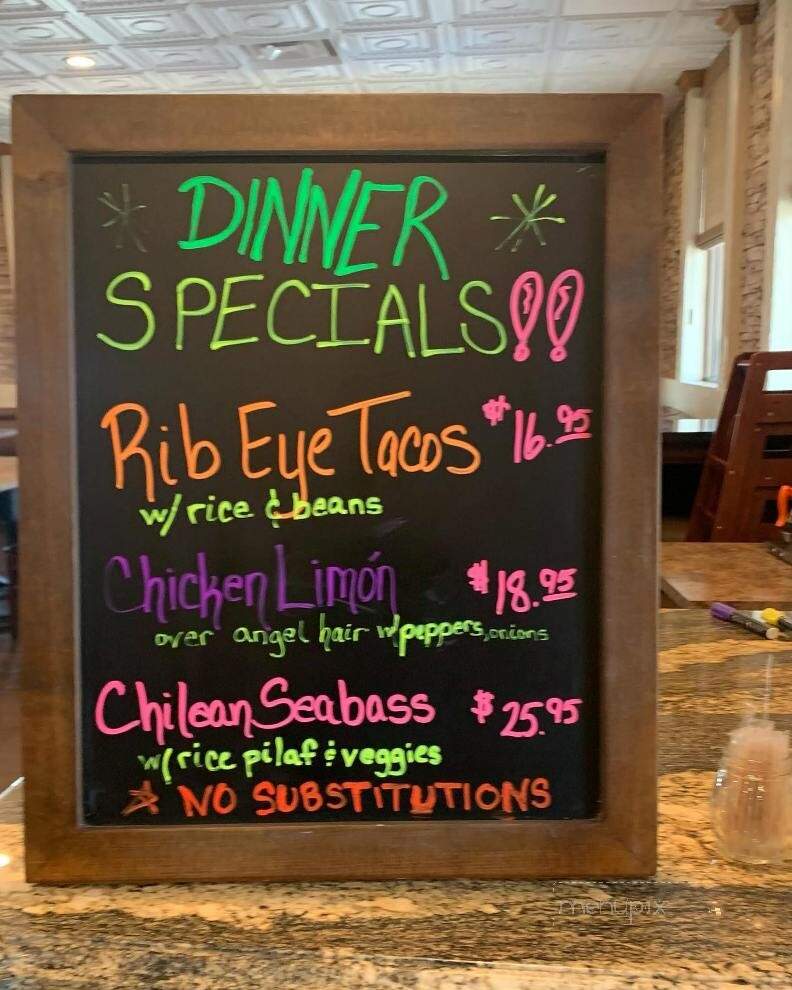 DINNER
SPECIALS!!
Rib Eye Tacos $16.95
w/rice & beans
Chicken Limón $18.95
over angel hair w/peppers, onions
Chilean Seabass $25.95
w/rice pilaf & veggies
☆ NO SUBSTITUTIONS
menupix